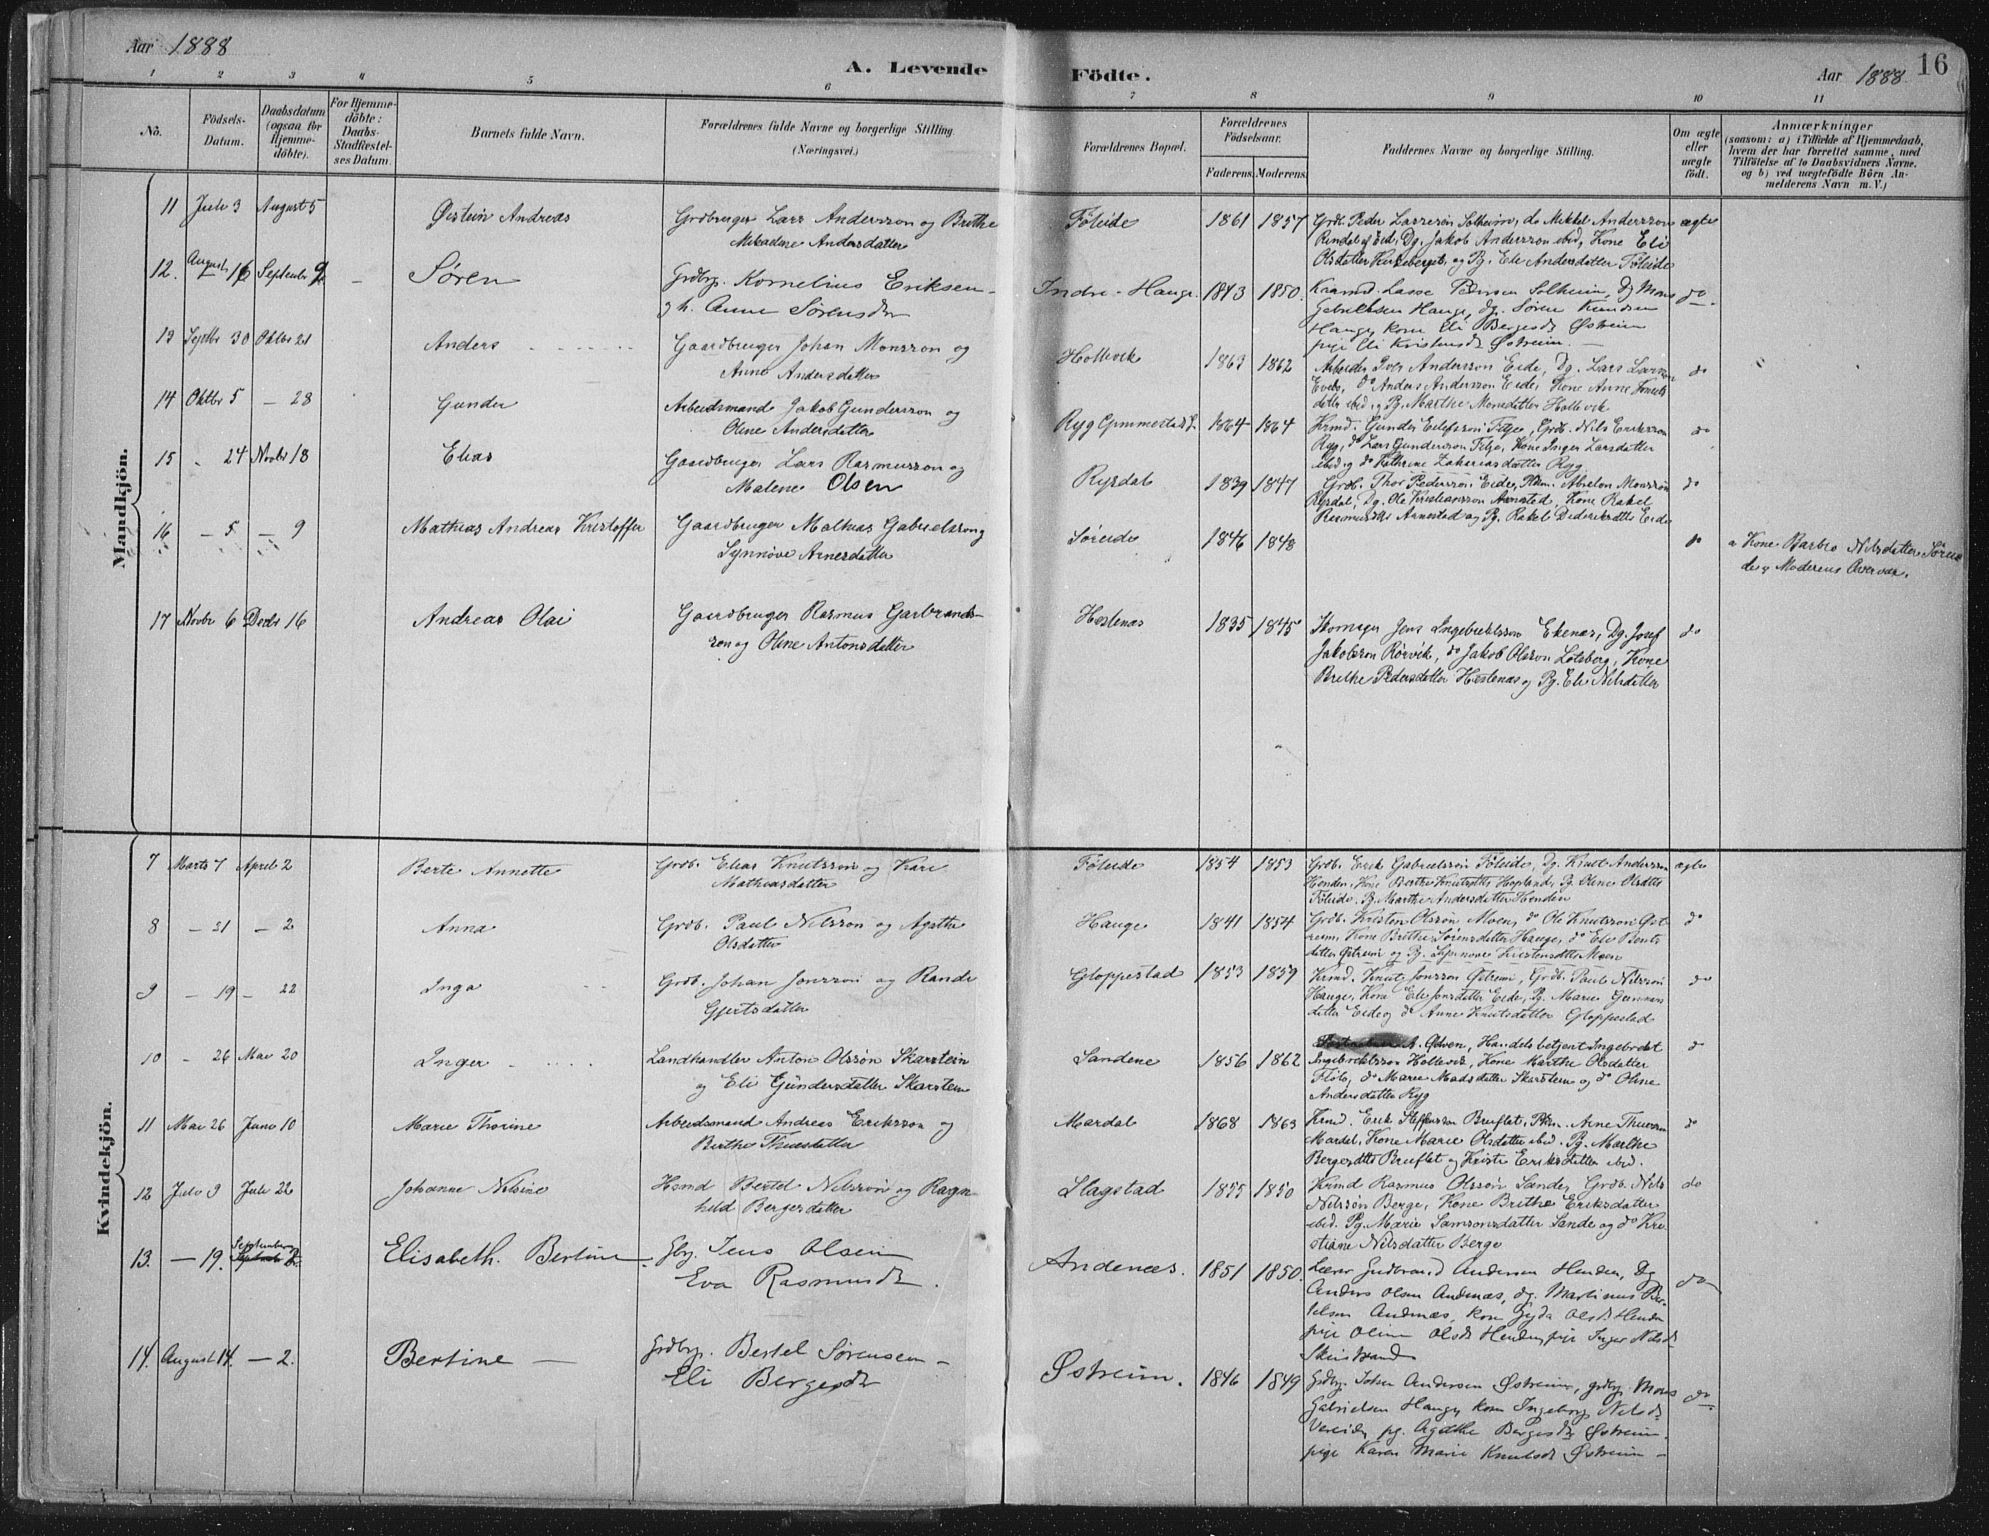 Aar 1888
A. Levende Födte.
Aar 1888
16
1 2 3 4 5 6 7 8 9 10 11
No.
Födsels-Datum.
Daabsdatum (ogsaa for Hjemmedöbte).
For Hjemmedöbte: Daabs-Stadfæstelses Datum.
Barnets fulde Navn.
Forældrenes fulde Navne og borgerlige Stilling. (Næringsvei.)
Forældrenes Bopæl.
Forældrenes Födselsaar.
Faderens. Moderens.
Faddernes Navne og borgerlige Stilling.
Om ægte eller uægte födt.
Anmærkninger
(saasom: a) i Tilfælde af Hjemmedaab, hvem der har forrettet samme, med Tilföielse af to Daabsvidners Navne, og b) ved uægtefödte Börn Anmelderens Navn m. V.)
Mandkjön.
11 Juli 3 August 5 Øistein Andreas Grdbruger Lars Andersson og Brithe
Mikaeline Andersdatter
Föleide 1861 1857 Grdb. Peder Lassesön Solheim, do Mikkel Andersson ægte
Rindal af Eid, Dg. Jakob Andersson ibid, Kone Eli
Olsdatter og Pg. Eli Andersdatter Föleide
12. August 16 September 9 - Sören Grdbrg. Kornelius Eriksen
og h. Anne Sörensdr
Indre-Hauge. 1843 1850. Lasse Pedersen Solheim, dg Mons do
Gabrielsen Hauge, dg. Sören Knudsen
Hauge, kone Eli Bergesdr Østreim
pige Eli Kristensdr Østreim. -
13 Septbr 30 Oktbr 21 Anders Gaardbruger Johan Monsson og
Anne Andersdatter
Hollevik 1863 1862 Arbeider Iver Andersson Eide, Dg. Lars Larsson do
Evebö, do Anders Andersson Eide, Kone Anne Knuts
datter ibid og Pg. Marthe Monsdatter Hollevik
14 Oktbr 5 - 28 Gunder Arbeidsmand Jakob Gundersson og
Oline Andersdatter
Ryg Gimmestad S. 1864 1864 Krmd. Gunder Ellefsson Felje, Grdb. Nils Eriksson do
Ryg, do Lars Gundersson Felje, Kone Inger Larsdatter
ibid og do Kathrine Zakariasdatter Ryg
15 - 24 Novbr 18 Elias Gaardbruger Lars Rasmusson og
Malene Olsen
Rysdal 1839 1847 Grdb. Thor Pedersson Eide, Absalon Monsson do
Rysdal, Dg. Ole Kristiansson Arnestad, Kone Rakel
Rasmusdtr Arnestad og Pg. Rakel Dideriksdtr Eide
16 - 5 - 9 Mathias Andreas Kristoffer Gaardbruger Mathias Gabrielsson og
Synnöve Arnesdatter
Söreide 1846 1848 do a Kone Barbro Nilsdatter Sörei
de og Moderens
17 Novbr 6 Decbr 16 Andreas Olai Gaardbruger Rasmus Garbrands-
son og Oline Antonsdatter
Hestenæs 1835 1845 Skomager Jens Ingebrektsson Ekenæs, Dg. Josef do
Jakobsson Rörvik, do Jakob Olsson Lotsberg, Kone
Brithe Pedersdatter Hestenæs og Pg. Eli Nilsdatter
Kvindekjön.
7 Marts 7 April 2 Berte Annette Grdb. Elias Knutsson og Kari
Mathiasdatter
Föleide 1854 1853 Grdb. Erik Gabrielsson Föleide, Dg. Knut Andersson ægte
Henden, Kone Berthe Knutsdtr Hopland, Pg. Oline Olsdtr
Föleide, Pg. Marthe Andersdatter Henden
8 - 21 - 2 Anna Grdb. Paul Nilsson og Agathe
Olsdatter
Hauge 1841 1854 Grdb. Kristen Olsson Moen, do Ole Knutsson Øst- do
reim, Kone Brithe Sörensdatter Hauge, do Eli Bents
datter Østreim og Pg. Synnöve Kristensdatter Moen
9 - 19 - 22 Inga Grdb. Johan Jonsson og Rande
Gjertsdatter
Gloppestad 1853 1859 Krmd. Knut Jonsson Østreim, Grdb. Paul Nilsson do
Hauge, Kone Eli Jonsdatter Eide, Pg. Marie
datter Eide og do Anne Knutsdatter Gloppestad
10 - 26 Mai 20 Inger Landhandler Anton Olsson Skarstein
og Eli Gundersdatter Skarstein
Sandene 1856 1862 A. Odven, Handelsbetjent Ingebrekt do
Ingebrektsson Hollevik, Kone Marthe Olsdatter
Flöto, do Marie Madsdatter Skarstein og do Oline
Andersdatter Ryg
11 Mai 26 Juni 10 Marie Thorine Arbeidsmand Andreas Eriksson og
Berthe Thuesdatter
Mardal 1868 1863 Krmd. Erik Steffensson Bruflat, Arne Thuesson do
Mardal, Kone Marie Olsdatter ibid. Pg. Marthe
Bergesdtr Bruflat og Kristi Eriksdatter ibid.
12 Juli 9 Juli 22 Johanne Nilsine Hsmd Bertel Nilsson og Ragn-
hild Bergesdatter
Slagstad 1855 1850 Krmd Rasmus Olsson Sande, Grdb. Nils do
Nilsson Berge, Kone Brithe Eriksdatter
ibid. Pg. Marie Samsonsdatter Sande og do Kri
stiane Nilsdatter Berge
13. - 19. September 2. Elisabeth Bertine Gbrg. Jens Olsen
Eva Rasmusdr.
Andenæs. 1851 1850. Lærer Gudbrand Andersen Henden, Dg do
Anders Olsen Andenæs, dg. Martinus Ber-
telsen Andenæs, kone Gyda Olsdr Henden
pige Oline Olsdr Henden, pige Inger Nilsdr
Skeistrand
14. August 14. - 2. Bertine Grdbrg. Bertel Sörensen
Eli Bergesdr
Østreim. 1846 1849 Grdbrg. Johan Andersen Østreim, grdbrg. Mons do
Gabrielsen Hauge, kone Ingeborg Nilsdr
Vereide, pg. Agathe Bergesdr Østreim,
pige Karen Marie Knudsdr Østreim -